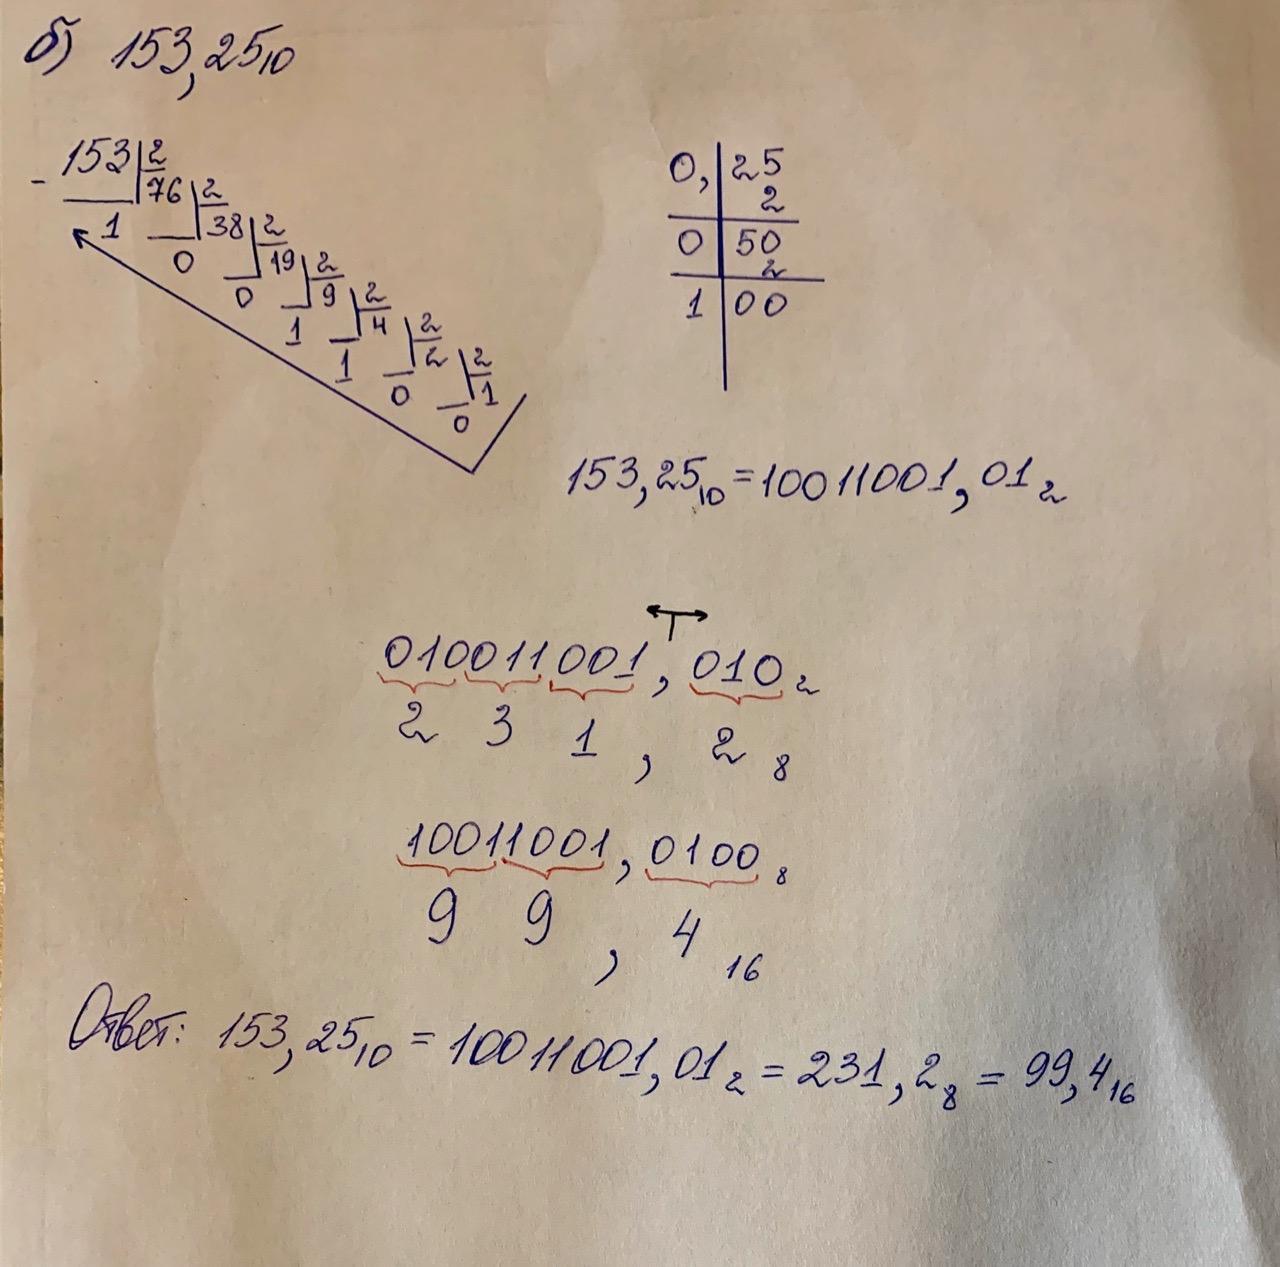 б) 153,25₁₀
153 2
76 2
1 38 2
0 19 2
0 9 2
1 4 2
1 2 2
0 1
0
0, 25
2
0 50
2
1 00
153,25₁₀ = 10011001,01₂
010011001,010₂
2 3 1 , 2 ₈
10011001,0100 ₈
9 9 , 4 ₁₆
Ответ: 153,25₁₀ = 10011001,01₂ = 231,2₈ = 99,4₁₆